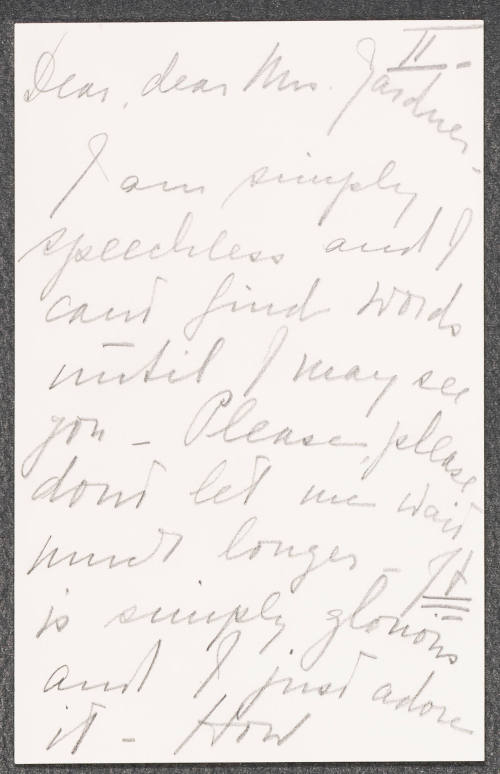 II -
Dear, dear Mrs. Gardner -
I am simply
speechless and I
cant find words
until I may see
you - Please, please
dont let me wait
much longer - It
is simply glorious
and I just adore
it - How